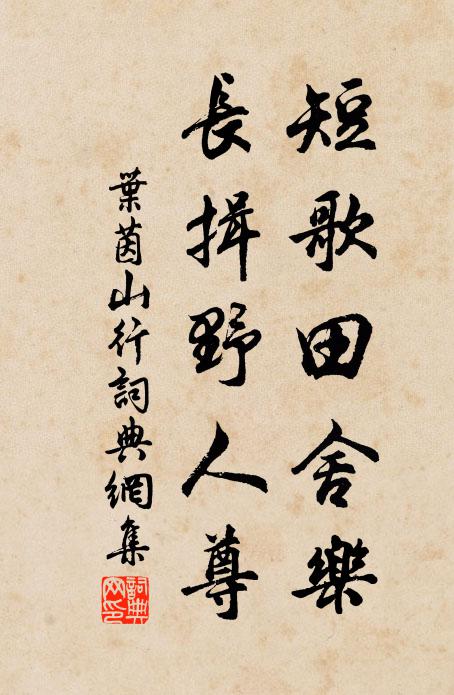 短歌田舍樂
長揖野人尊
葉茵山行詞典網集
詞典網印